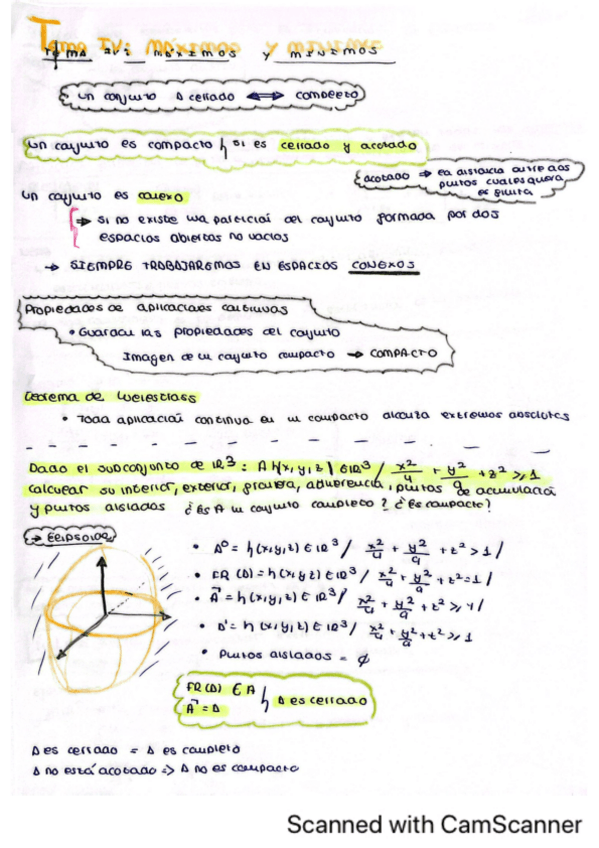 Tema IV: Máximos y mínimos
TEMA IV: MÁXIMOS Y MÍNIMOS
un conjunto A cerrado ⟺ completo
un conjunto es compacto si es cerrado y acotado
acotado ⇒ la distancia entre dos
puntos cualesquiera
es finita
un conjunto es conexo
⇒ si no existe una partición del conjunto formada por dos
espacios abiertos no vacíos
→ SIEMPRE TRABAJAREMOS EN ESPACIOS CONEXOS
Propiedades de aplicaciones continuas
• Guardan las propiedades del conjunto
Imagen de un conjunto compacto → COMPACTO
Teorema de Weierstrass
• Toda aplicación continua en un compacto alcanza extremos absolutos
Dado el subconjunto de IR³: A = {(x,y,z) ∈ IR³ / x²/4 + y²/9 + z² ≥ 1
calcular su interior, exterior, frontera, adherencia, puntos de acumulación
y puntos aislados ¿Es A un conjunto completo? ¿Es compacto?
→ Elipsoide
• A° = {(x,y,z) ∈ IR³ / x²/4 + y²/9 + z² > 1}
• FR(A) = {(x,y,z) ∈ IR³ / x²/4 + y²/9 + z² = 1}
• A̅ = {(x,y,z) ∈ IR³ / x²/4 + y²/9 + z² ≥ 1}
• A' = {(x,y,z) ∈ IR³ / x²/4 + y²/9 + z² ≥ 1
• Puntos aislados = ∅
FR(A) ∈ A
A̅ = A } A es cerrado
A es cerrado = A es completo
A no está acotado => A no es compacto
Scanned with CamScanner